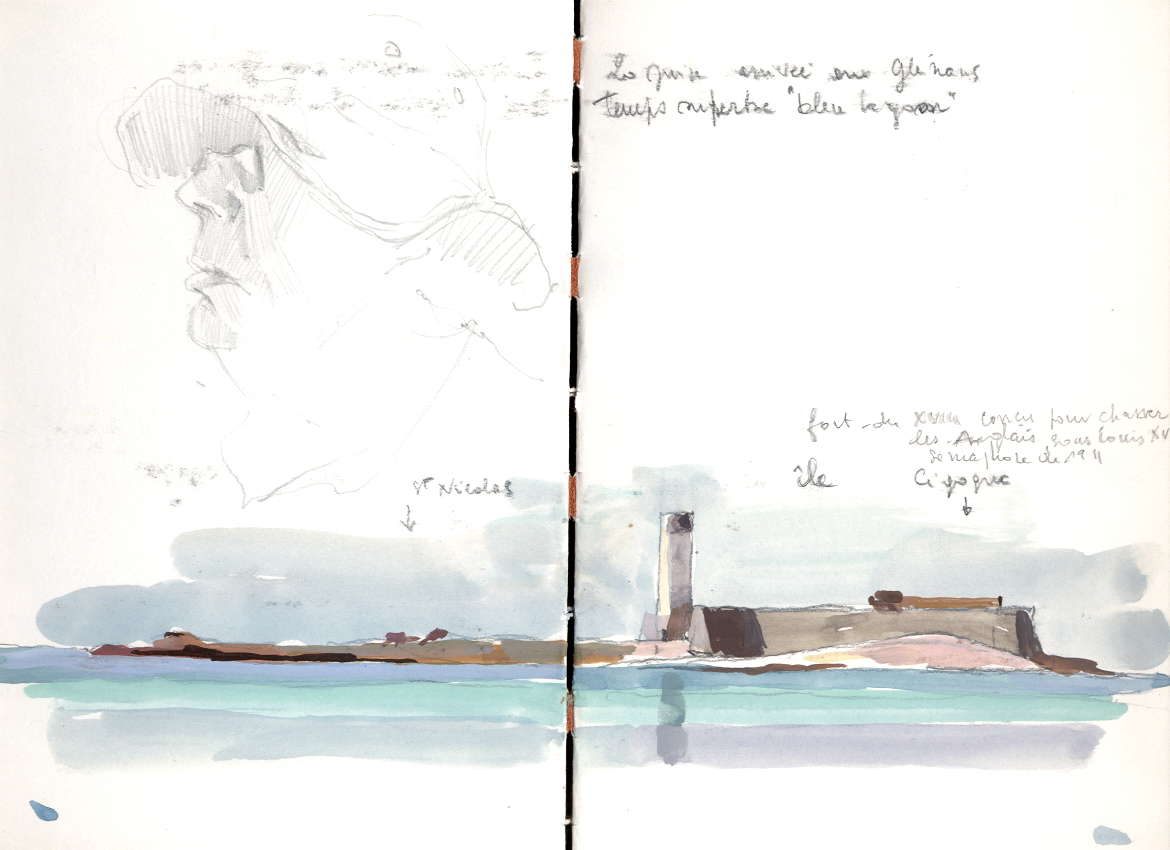 St Nicolas
arrivée aux Glénans
temps superbe "bleu lagoon"
fort du XVIII conçu pour chasser
les Anglais sous Louis XV
Sémaphore de 1911
île Cigogne